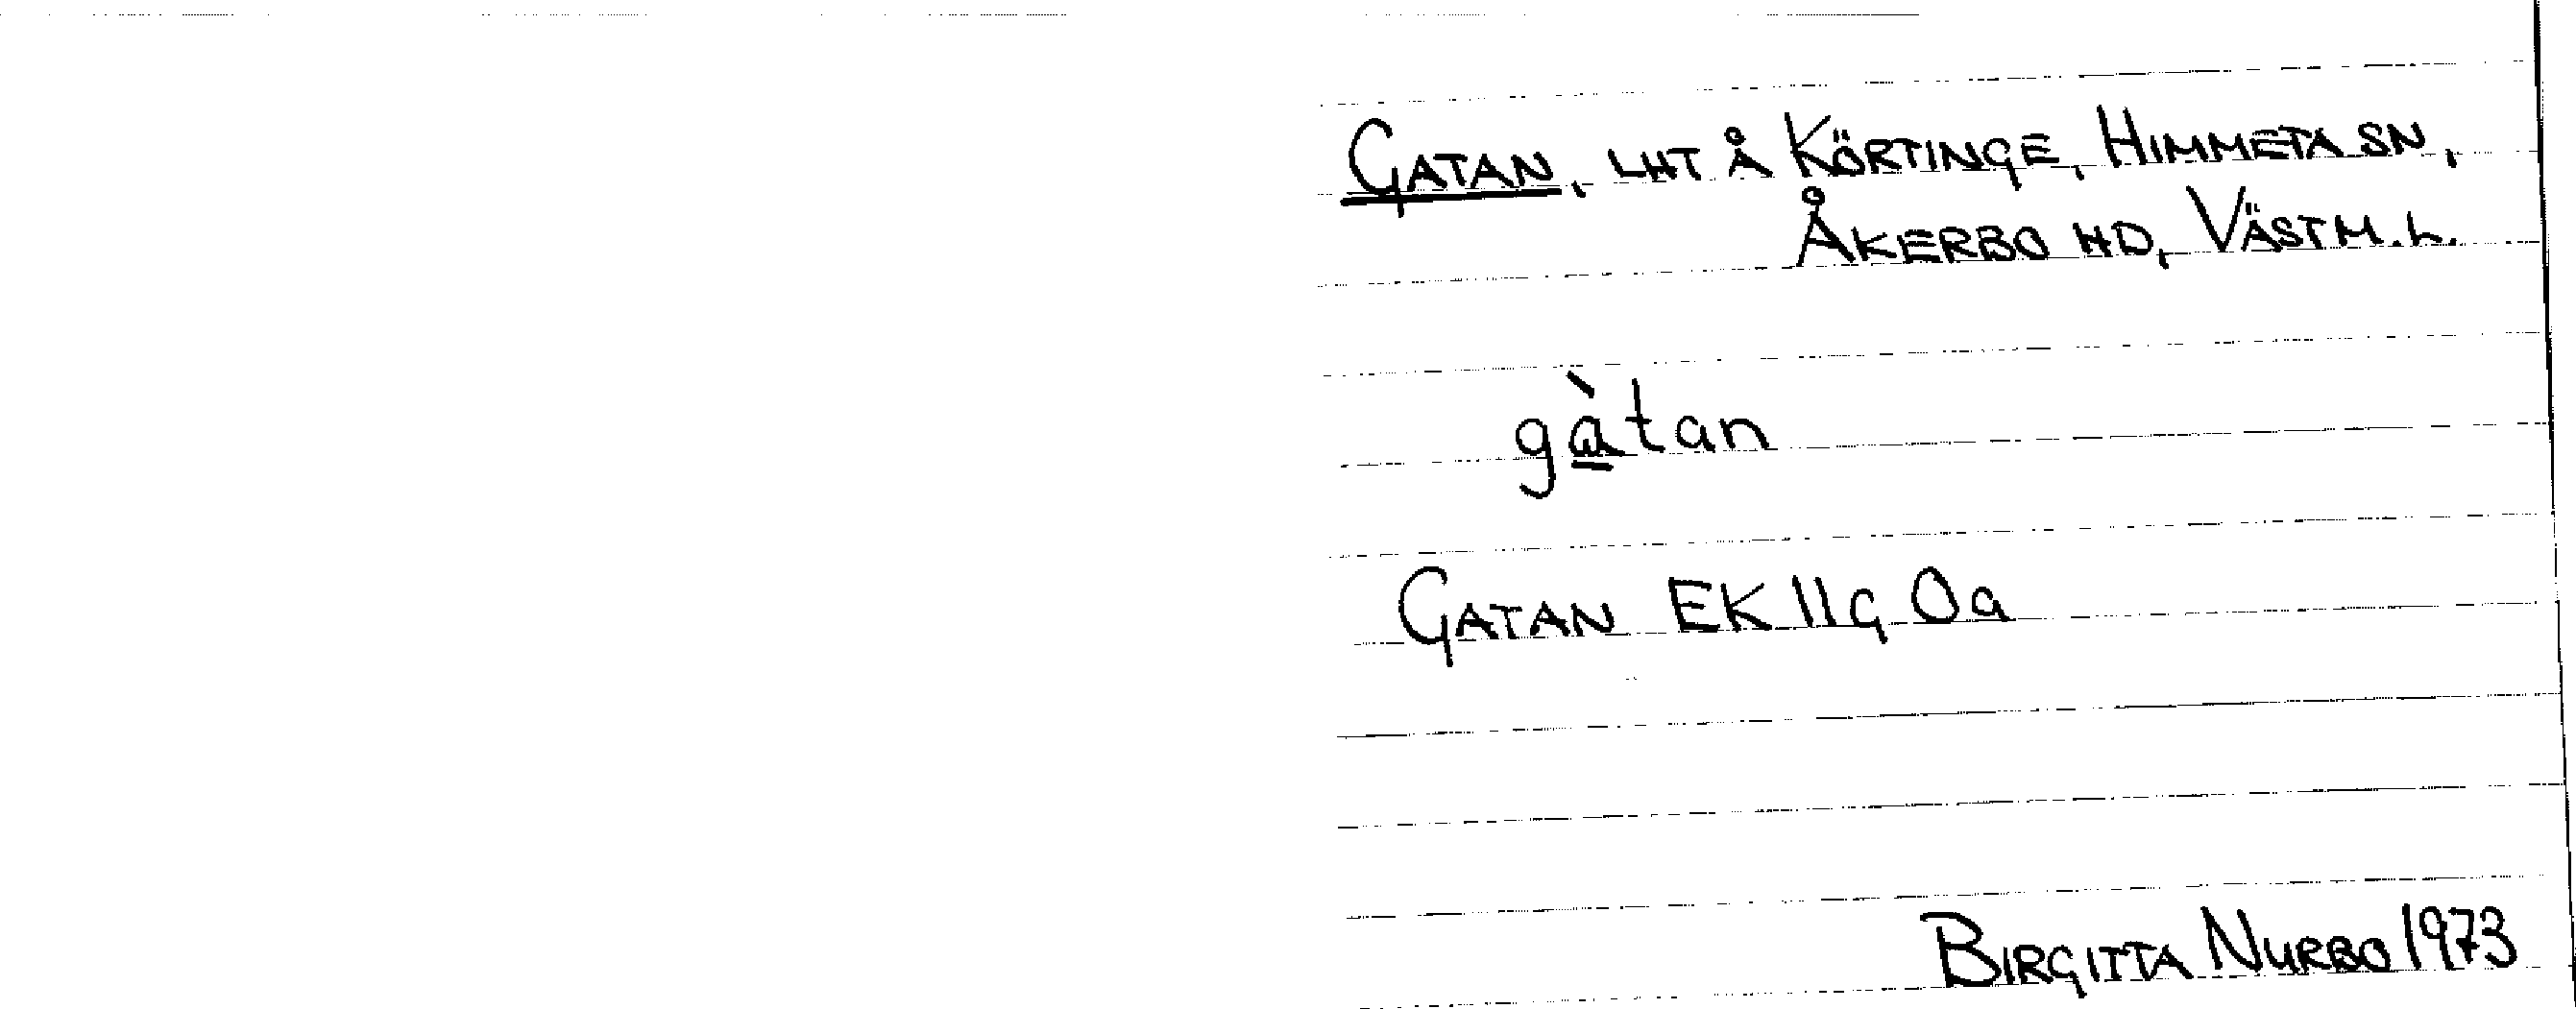 GATAN, LHT Å KÖRTINGE, HIMMETA SN,
ÅKERBO HD, VÄSTM. L.
gà̱tan
GATAN EK 11G 0a
BIRGITTA NURBO 1973